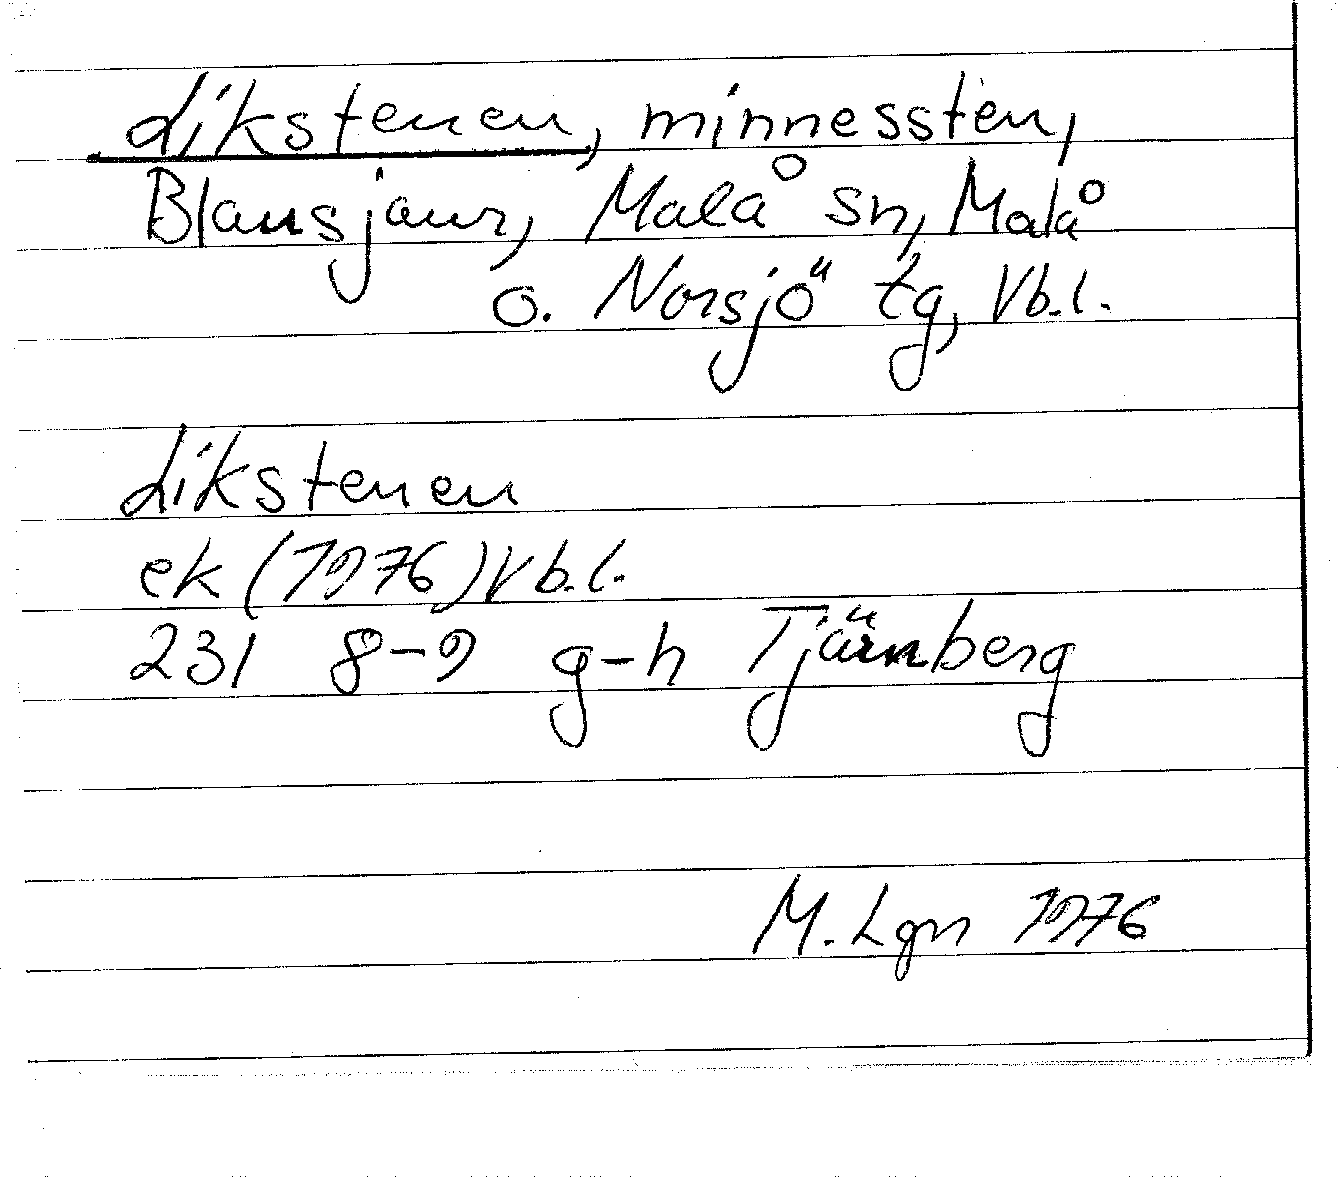 Likstenen, minnessten,
Blausjaur, Malå sn, Malå
o. Norsjö tg, Vb.l.
Likstenen
ek (1976) Vb.l.
231 8-9 g-h Tjärnberg
M. Lgn 1976